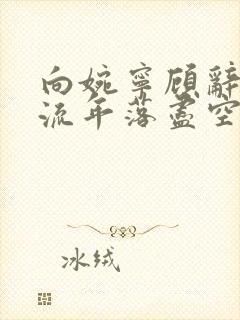 向婉宁顾辞
流年落尽空
冰绒